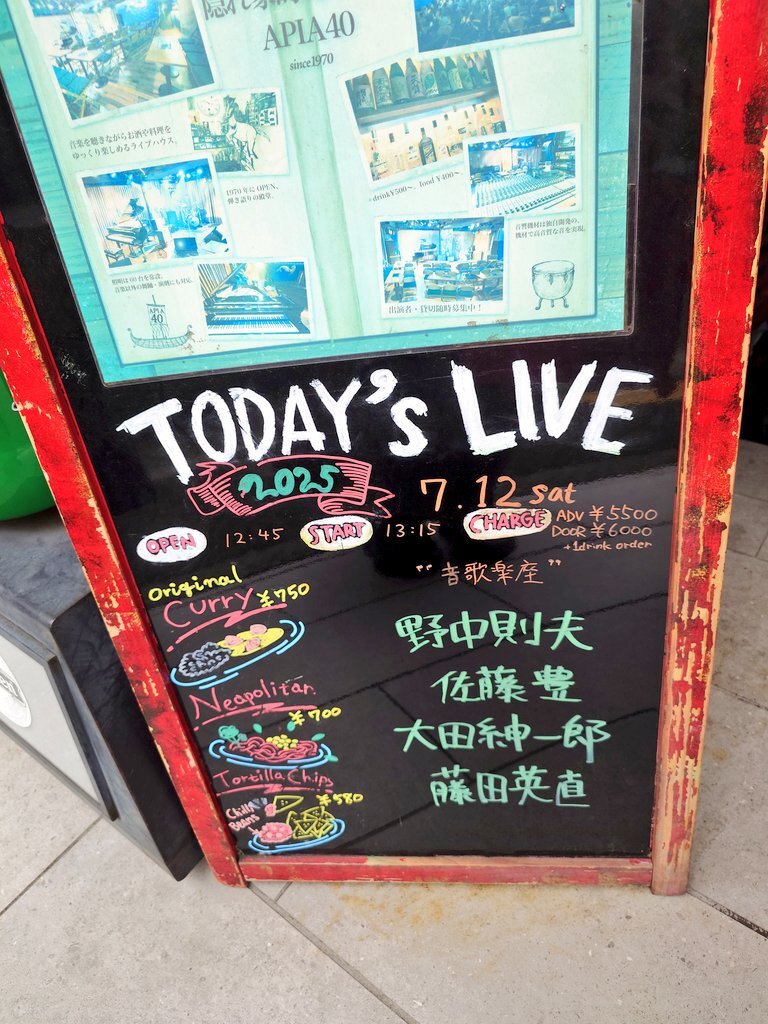 隠れ家
APIA40
since1970
音楽を聴きながらお酒や料理を
ゆっくり楽しめるライブハウス。
1970年にOPEN、
弾き語りの殿堂。
drink¥500〜、food ¥400〜。
照明は60台を常設。
音楽以外の舞踊・演劇にも対応。
音響機材は独自開発の
機材で高音質な音を実現。
APIA
40
出演者・貸切随時募集中!
TODAY's LIVE
2025
7.12 sat
OPEN 12:45 START 13:15 CHARGE ADV ¥5500
DOOR ¥6000
+1drink order
"音歌楽座"
Original
Curry ¥750
Neapolitan
¥700
Tortilla Chips
¥580
Chilli
Beans
野中則夫
佐藤豊
大田紳一郎
藤田英直